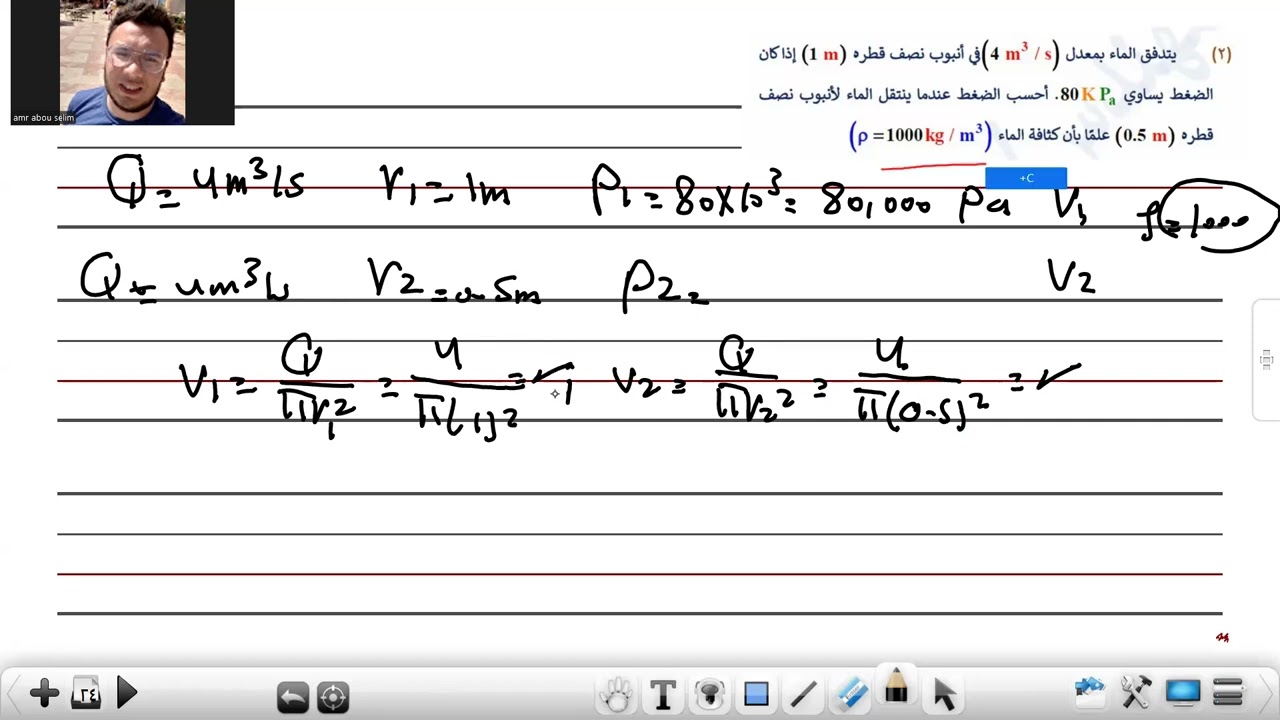 amr abou selim
(٢) يتدفق الماء بمعدل (4 m³ / s) في أنبوب نصف قطره (1 m) إذا كان
الضغط يساوي 80 K Pa. أحسب الضغط عندما ينتقل الماء لأنبوب نصف
قطره (0.5 m) علمًا بأن كثافة الماء (ρ =1000 kg / m³)
+C
Q = 4m³/s r₁ = 1m P₁ = 80×10³ = 80,000 Pa V₁ ρ = 1000
Q = 4m³/s r₂ = 0.5m P₂ = V₂
V₁ = Q/πr₁² = 4/π(1)² = ✓ V₂ = Q/πr₂² = 4/π(0.5)² = ✓
٢٤
T